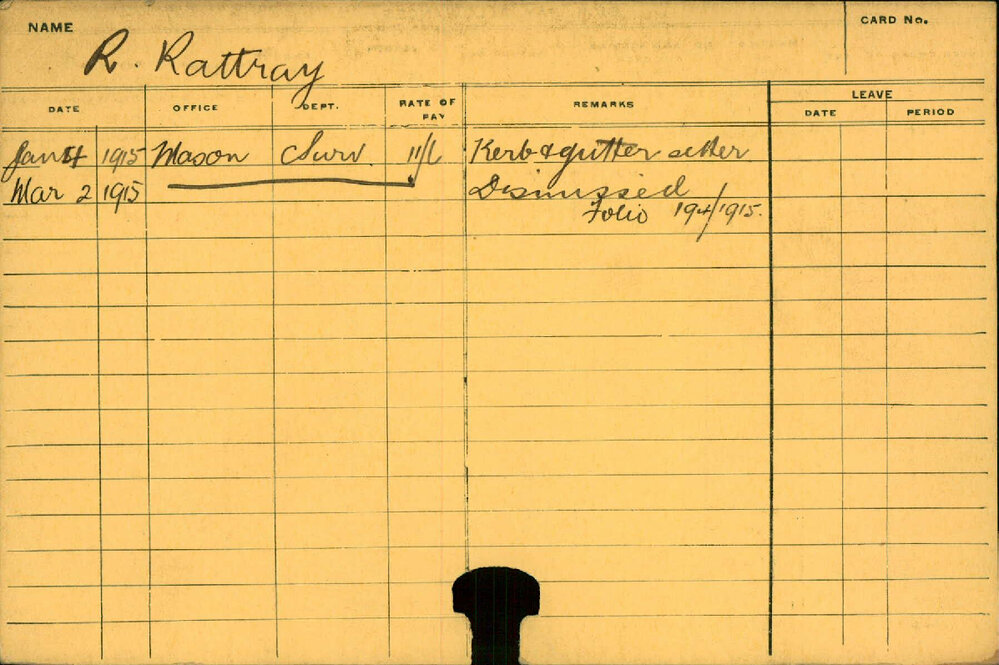 NAME
R. Rattray
CARD No.
DATE OFFICE DEPT. RATE OF PAY REMARKS LEAVE
DATE PERIOD
Jan 1915 Mason Surv. 11/6 Kerb & gutter setter
Mar 2 1915 Dismissed
Folio 194/1915.